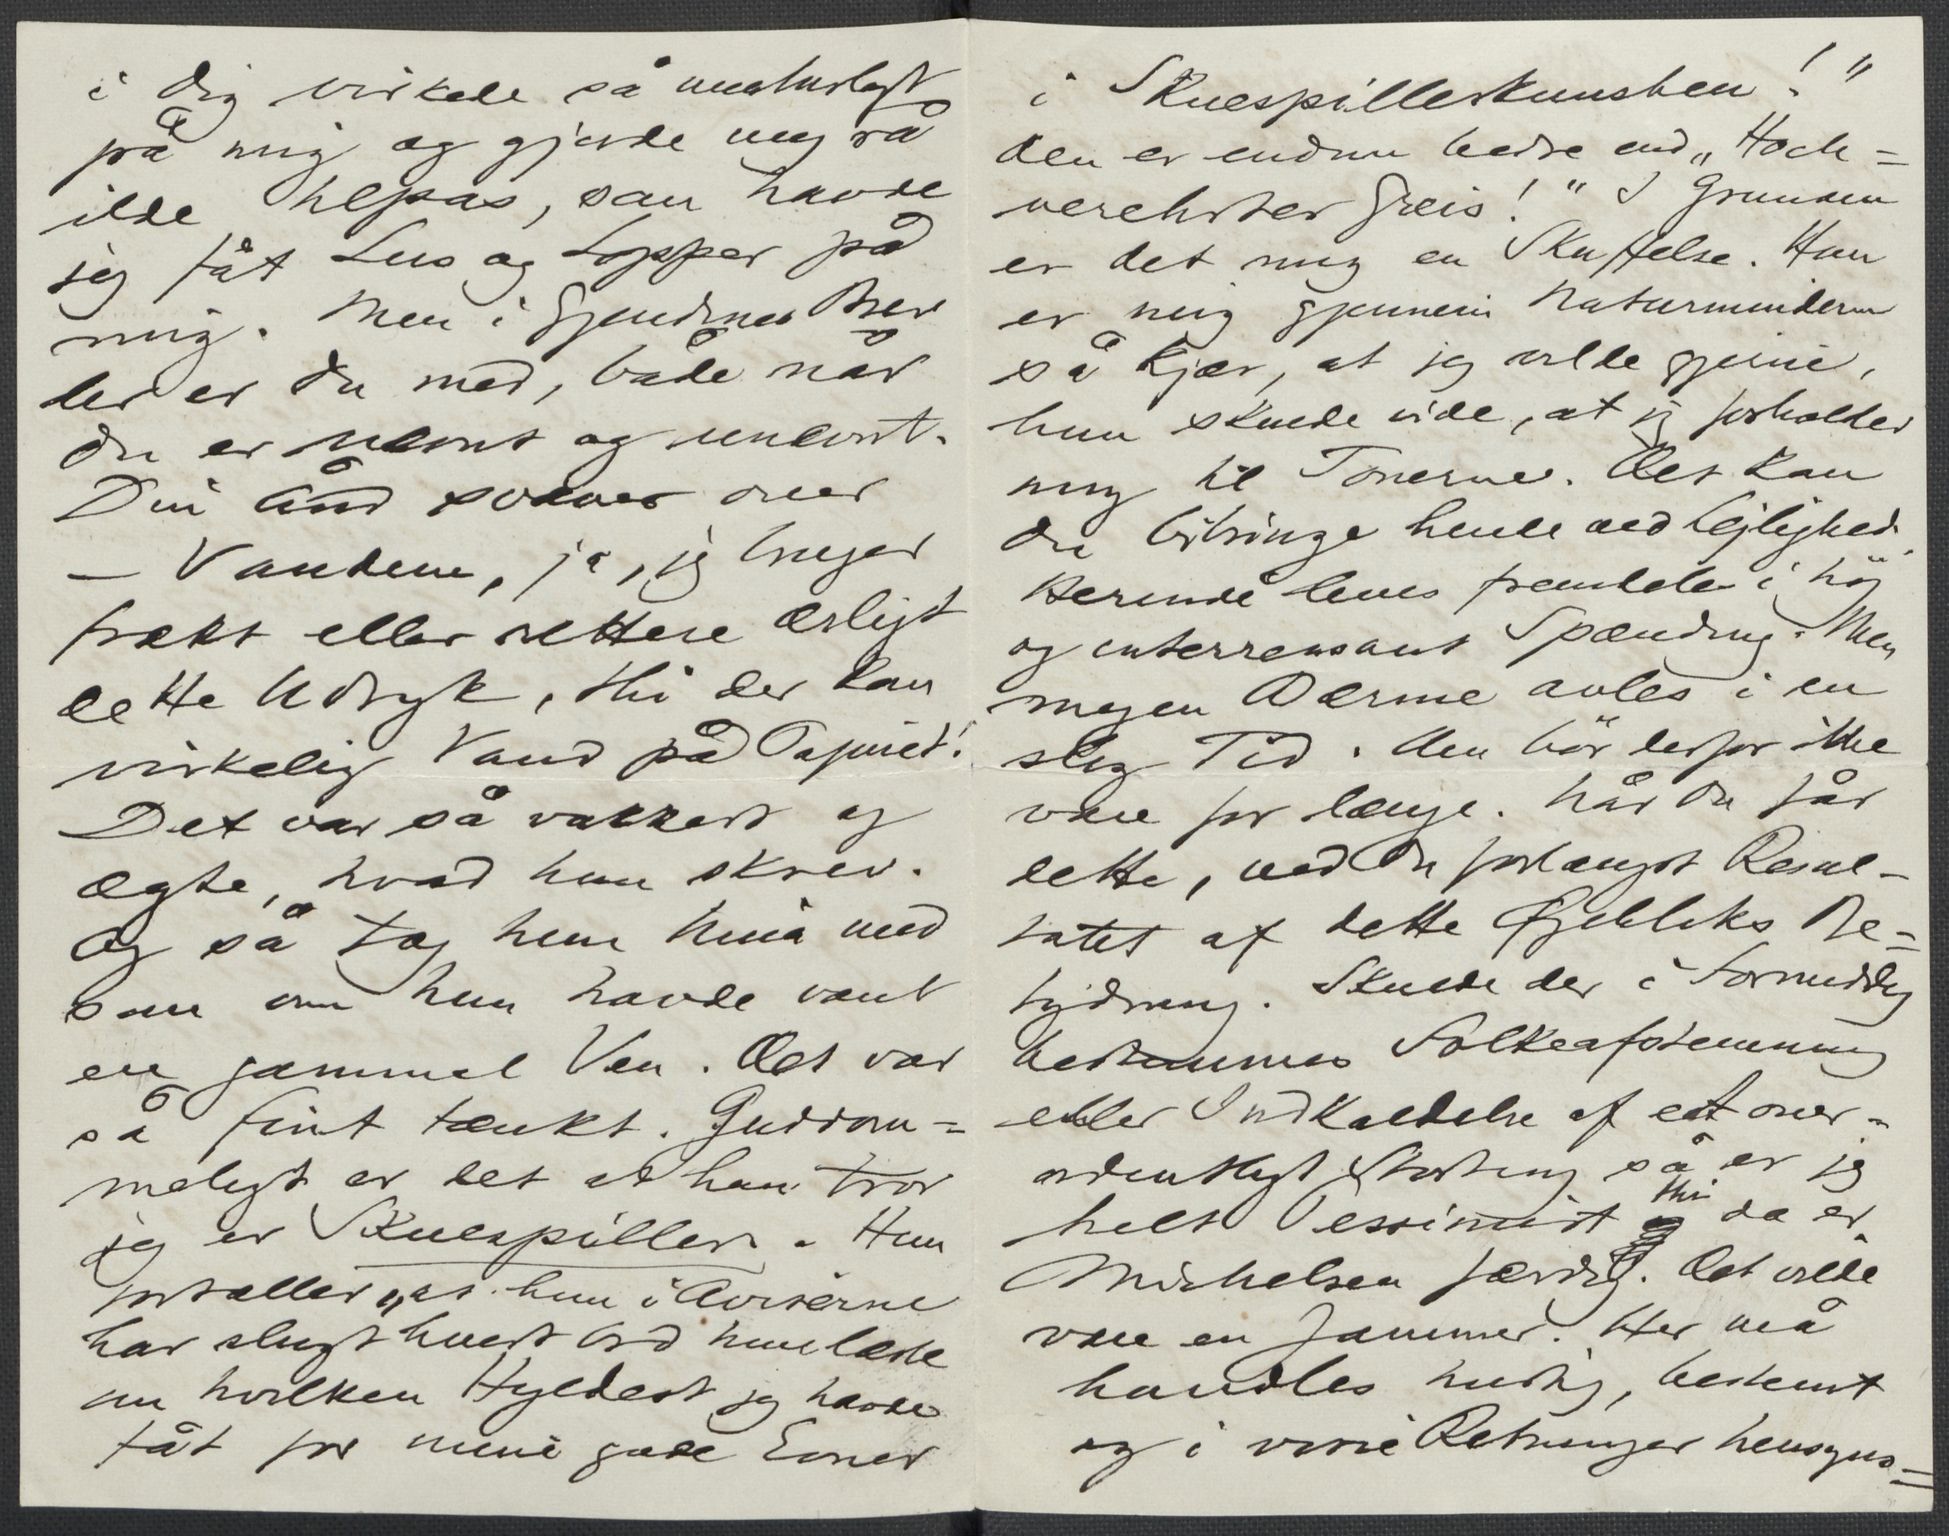 i Dig virkede så unaturligt
på mig og gjorde mig så
ilde tilpas, som havde
jeg fåt Lus og Lopper på
mig. Men i Gjendines Brev
der er Du med, både når
Du er nævnt og unævnt.
Din Ånd svæver over
– Vandene, ja, jeg bruger
frækt eller rettere ærligt
dette Udtryk, thi der kom
virkelig Vand på Papiret!
Det var så vakkert og
ægte, hvad hun skrev.
Og så tog hun Nina med
som om hun havde vært
en gammel Ven. Det var
så fint tænkt. Guddom=
meligt er det at hun tror
jeg er Skuespiller. Hun
fortæller, „at hun i Aviserne
har slugt hvert Ord hun læste
om hvilken Hyldest jeg havde
fåt for mine gode Evner
i Skuespillerkunsten!"
Den er endnu bedre end „Hoch=
verehrter Greis!" I Grunden
er det mig en Skuffelse. Hun
er mig gjennem Naturminderne
så kjær, at jeg vilde gjerne,
hun skulde vide, at jeg forholder
mig til Tonerne. Det kan
Du bibringe hende ved Lejlighed.
Herinde leves fremdeles i høj
og interressant Spænding. Men
megen Varme avles i en
slig Tid. Den bör derfor ikke
vare for længe. Når Du får
dette, ved Du forlængst Resul-
tatet af dette Øjebliks Be=
tydning. Skulde der i Formiddag
bestemmes Folkeafstemning
eller Indkaldelse af et over-
ordentligt Storting så er jeg
helt Pessimist thi da er
Michelsen færdig. Det vilde
være en Jammer. Her må
handles hurtig, bestemt
og i visse Retninger hensyns=